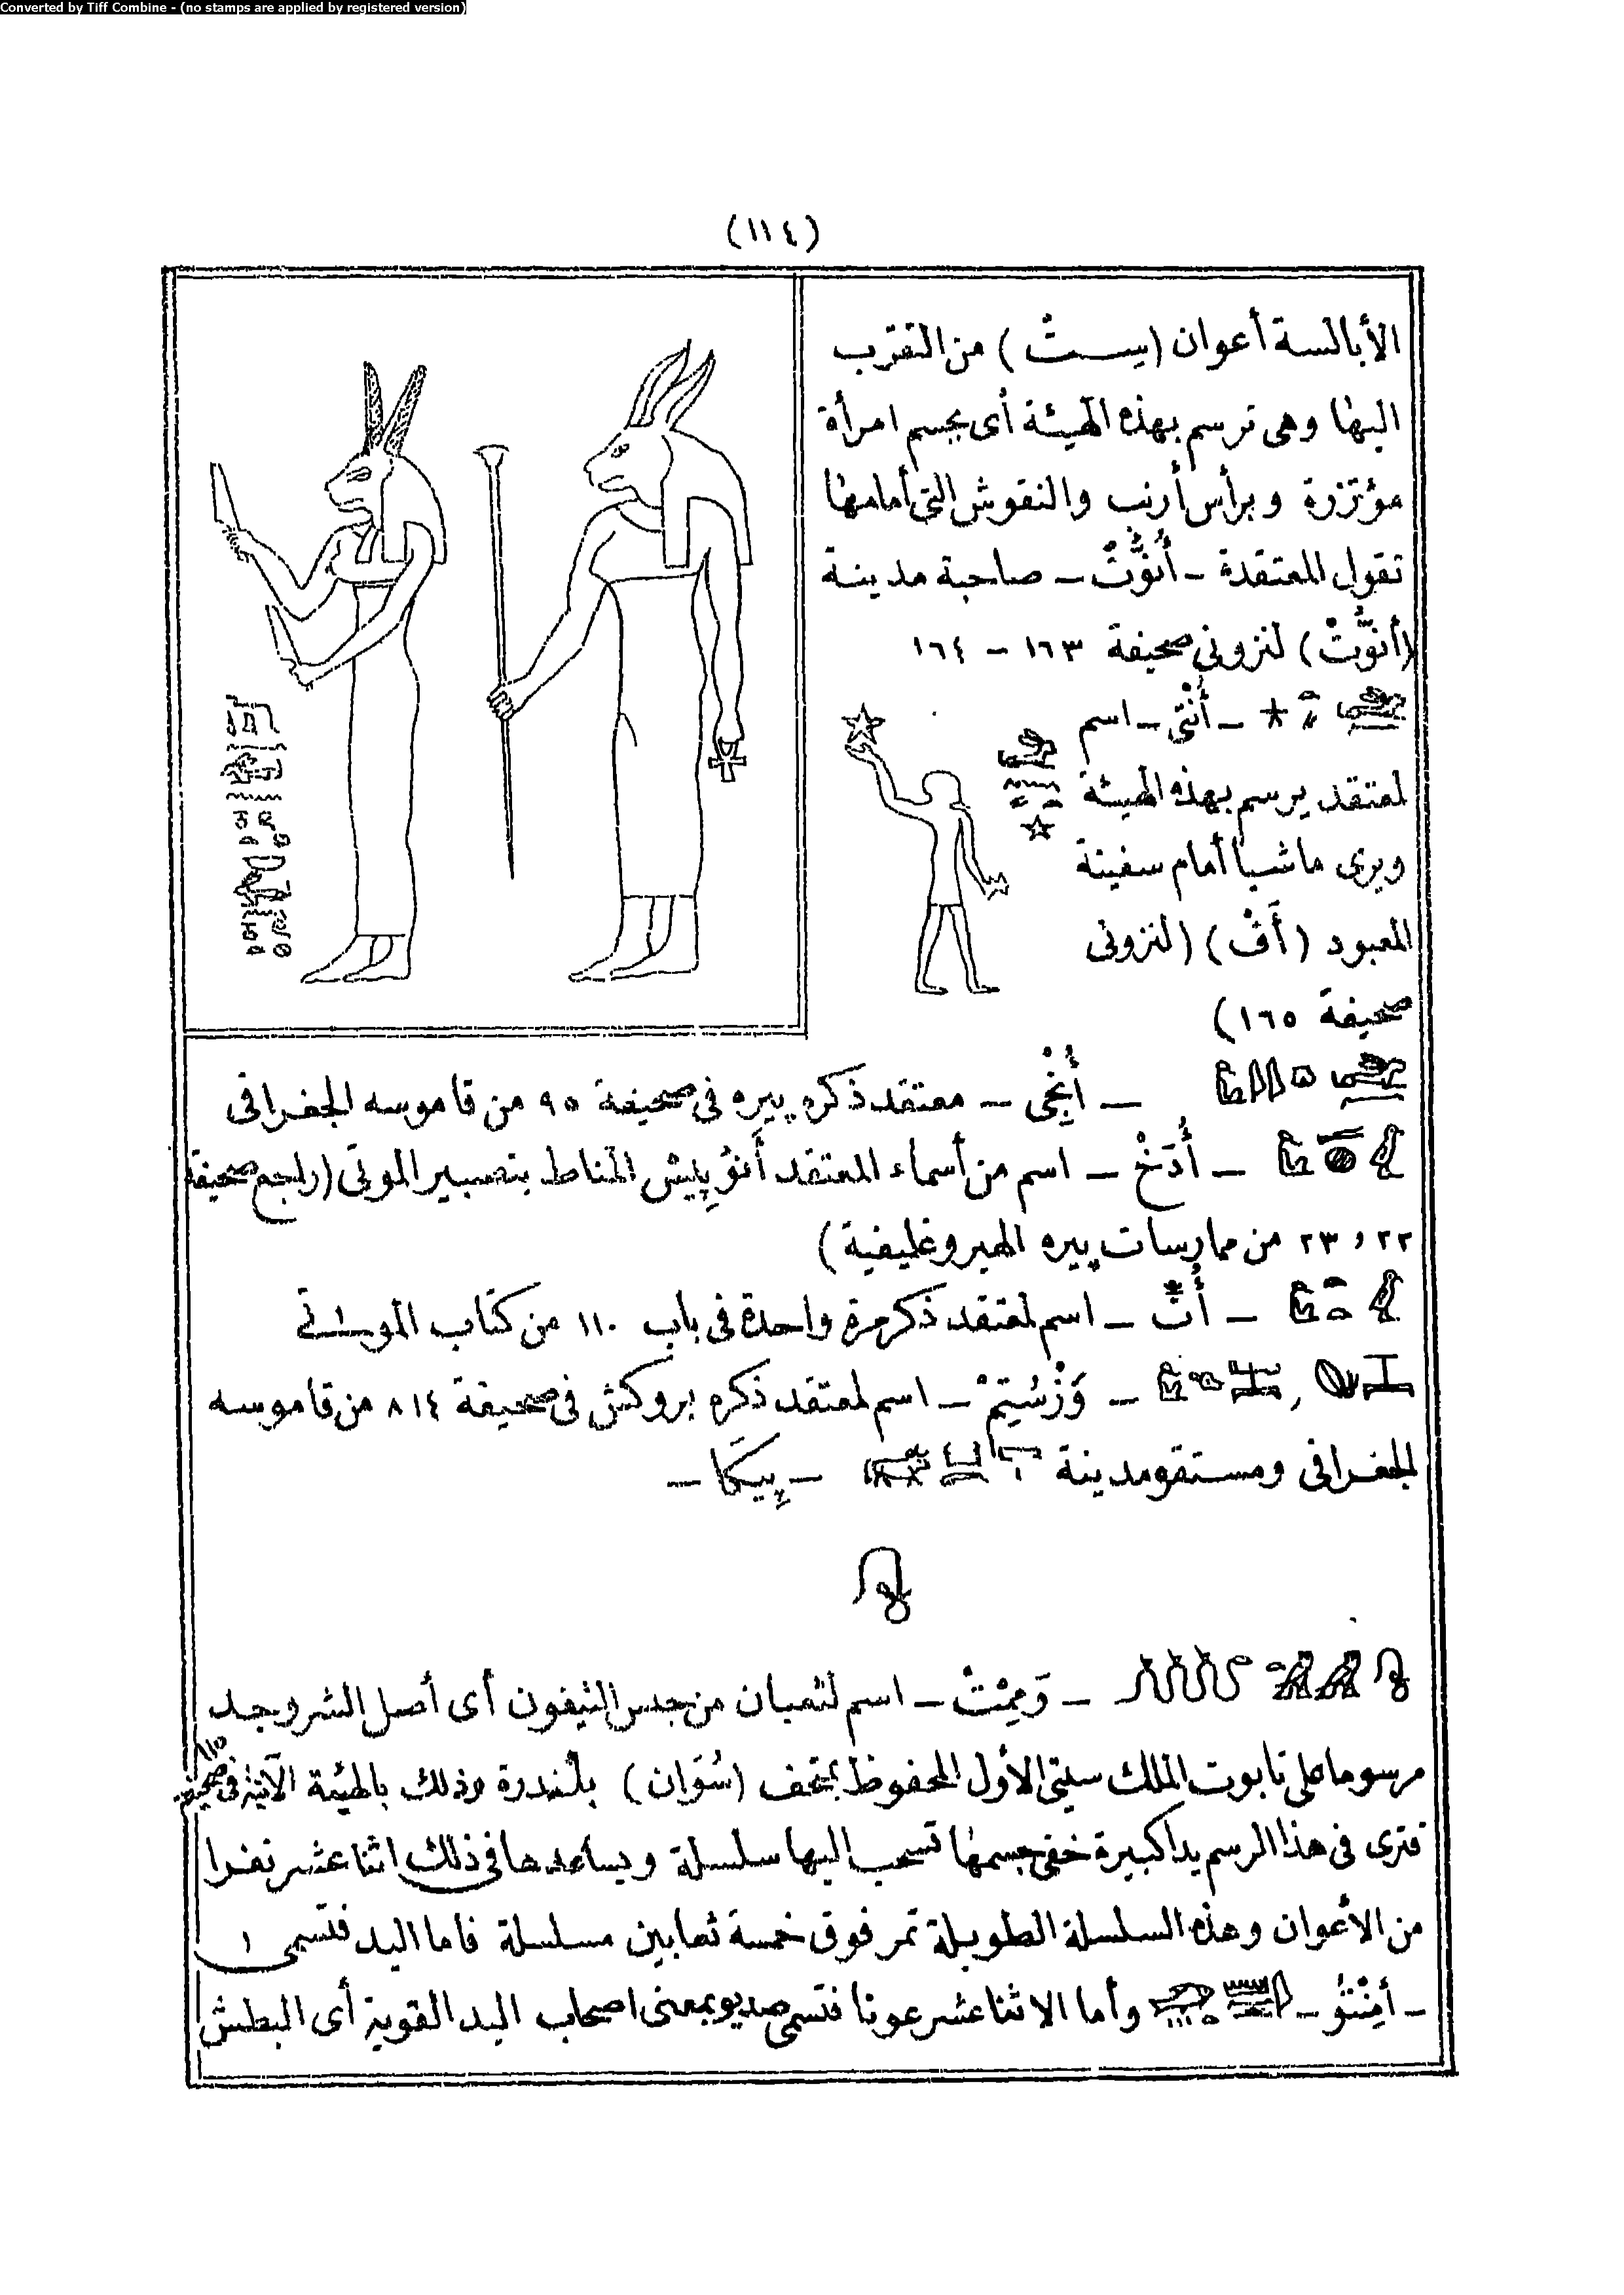 Converted by Tiff Combine - (no stamps are applied by registered version)
(١١٤)
الأبالسة أعوان (سِتْ) من التقرب
اليها وهى ترسم بهذه الهيئة أى بجسم امرأة
مؤتزرة وبرأس أرنب والنقوش التى أمامها
تقول المعتقدة - أُنُوُّتْ - صاحبة مدينة
(أنوُّتْ) لنزونى صحيفة ١٦٣ - ١٦٤
- أُنْتِى - اسم
لمعتقد يرسم بهذه الهيئة
ويرى ماشيا أمام سفينة
المعبود (أَفْ) (لنزونى
صحيفة ١٦٥)
- أُنْخِى - معتقد ذكره پيره فى صحيفة ٩٥ من قاموسه الجغرافى
- أُدَخْ - اسم من أسماء المعتقد أَنوُپِيسْ المناط بتصبير الموتى (راجع صحيفة
٢٢ و ٢٣ من ممارسات پيره الهيروغليفية)
- أُتْ - اسم لمعتقد ذكر مرة واحدة فى باب ١١٠ من كتاب الموتى
- وَزْسُتِمْ - اسم لمعتقد ذكره بروكش فى صحيفة ٨١٤ من قاموسه
الجغرافى ومستقره مدينة - پِيكَا -
- وَمِمْتْ - اسم لثعبان من جنس التيفون أى أصل الشر وجد
مرسوما على تابوت الملك سيتى الأول المحفوظ بمتحف (سُوَان) بلندرة وذلك بالهيئة الآتية فى صحيفة ١١٥
فترى فى هذا الرسم يدا كبيرة خفى جسمها تسحب اليها سلسلة ويساعدها فى ذلك اثنا عشر نفرا
من الأعوان وهذه السلسلة الطويلة تمر فوق خمسة ثعابين مسلسلة فاما اليد فتسمى
- أمِنْتوُ - وأما الاثنا عشر عونا فتسمى بمعنى اصحاب اليد القوية أى البطش